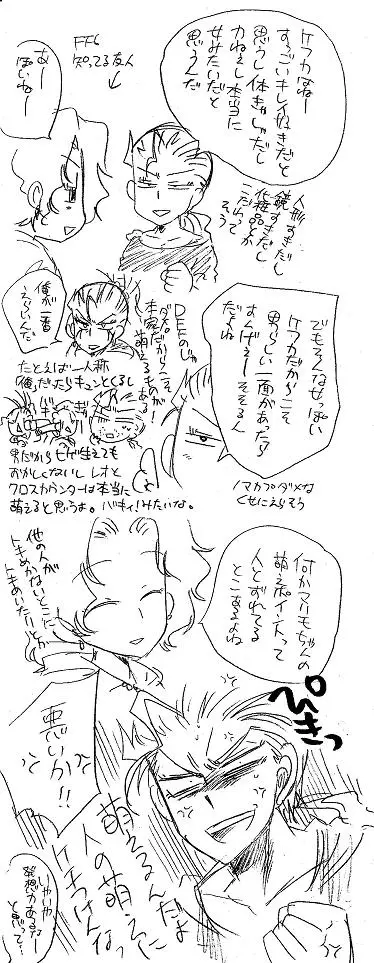 ケフカはねー
すっごいキレイ好きだと
思うし体きゃしゃだし
力ねぇし本当に
女みたいだと
思うんだ
FF6
知ってる友人
あー
ぽいねー
人形すきだし
鏡すきだし
化粧品とか
こだわって
そう
でもそんな
ケフカだからこそ
男らしい一面があったら
すんげぇーそそるん
だよね
俺が一番
えらいんだ。
DFFのじゃ
ダメ。
本家だからこそ
萌えるものが
ある
たとえば一人称
俺だったらキュンとくるし
男だからヒゲ生えても
おかしくないし レオと
クロスカウンターは本当に
萌えると思うよ。バキィ!みたいな。
ノマカプダメな
くせにえらそう
何かマリモちゃんの
萌えポイントって
人とずれてる
とこあるよね
他の人が
トキめかないとこに
トキめいたりとか
ぴきっ
悪いか!!
萌えるんだよ
人の萌えに
ケチつけんなっ
いやいや
発想力あるなー
と思って…